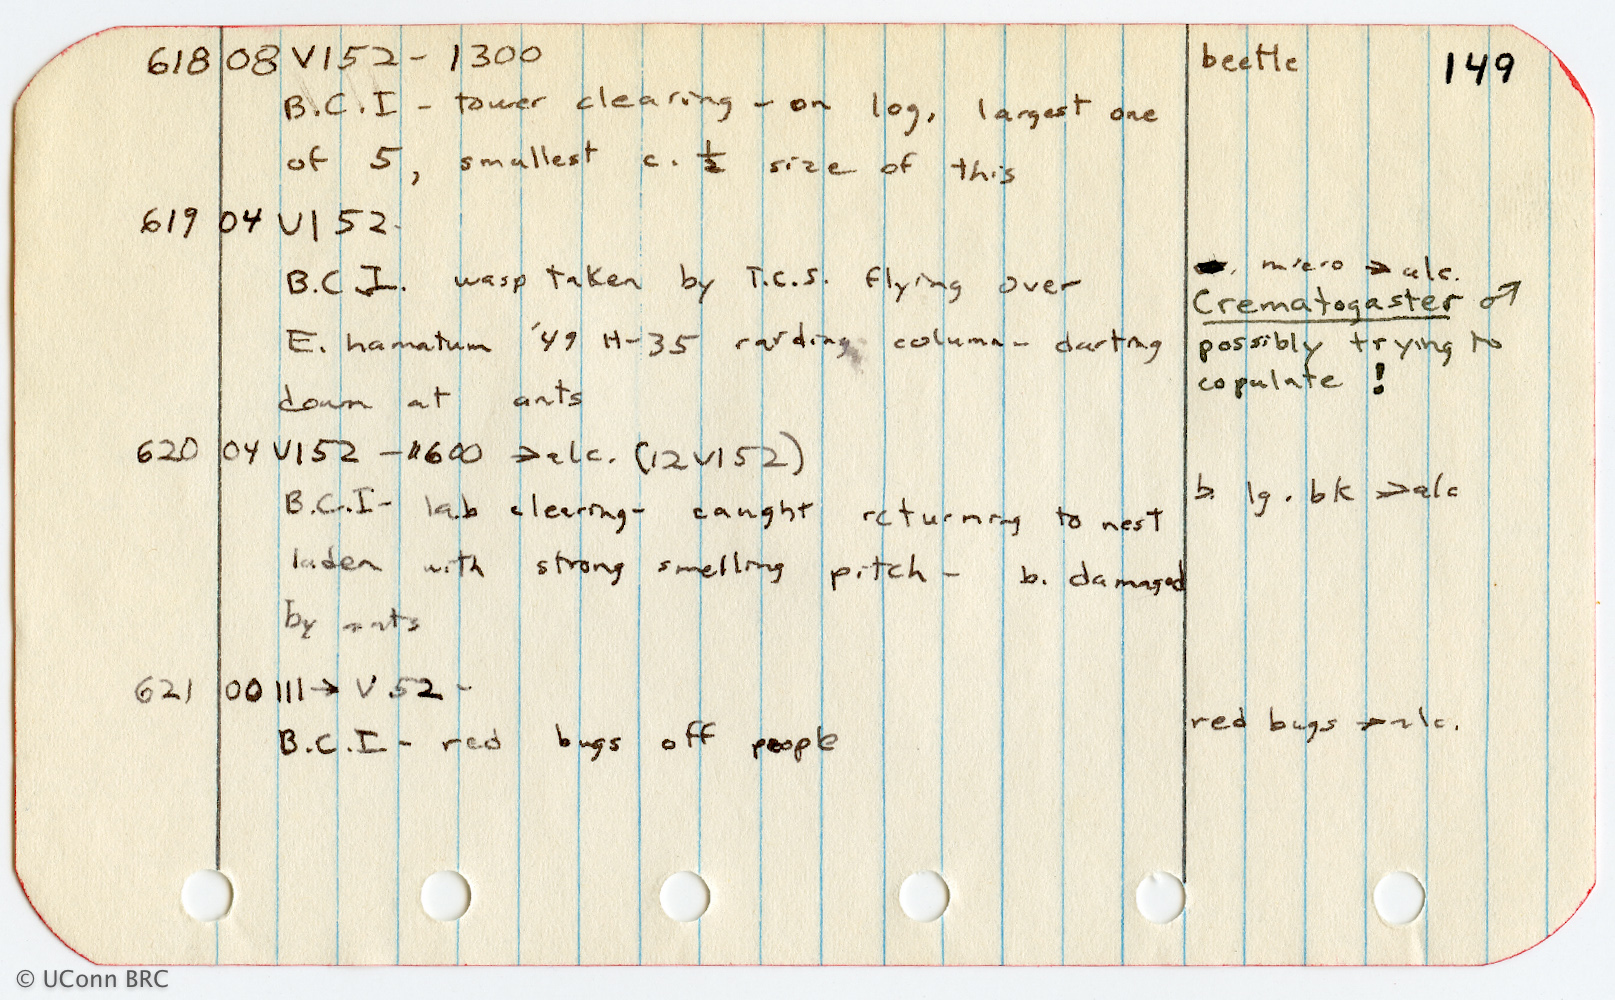 618 08 VI 52 - 1300 beetle 149
B.C.I - tower clearing - on log, largest one
of 5, smallest c. ½ size of this
619 04 VI 52-
B.C.I. wasp taken by T.C.S. flying over
E. hamatum '49 H-35 raiding column - darting
down at ants
micro → alc.
Crematogaster ♂
possibly trying to
copulate !
620 04 VI 52 - 1600 → alc. (12 VI 52)
B.C.I - lab clearing - caught returning to nest
laden with strong smelling pitch - b. damaged
by ants
b. lg. bk → alc
621 00 III → V 52 -
B.C.I - red bugs off people
red bugs → alc.
© UConn BRC